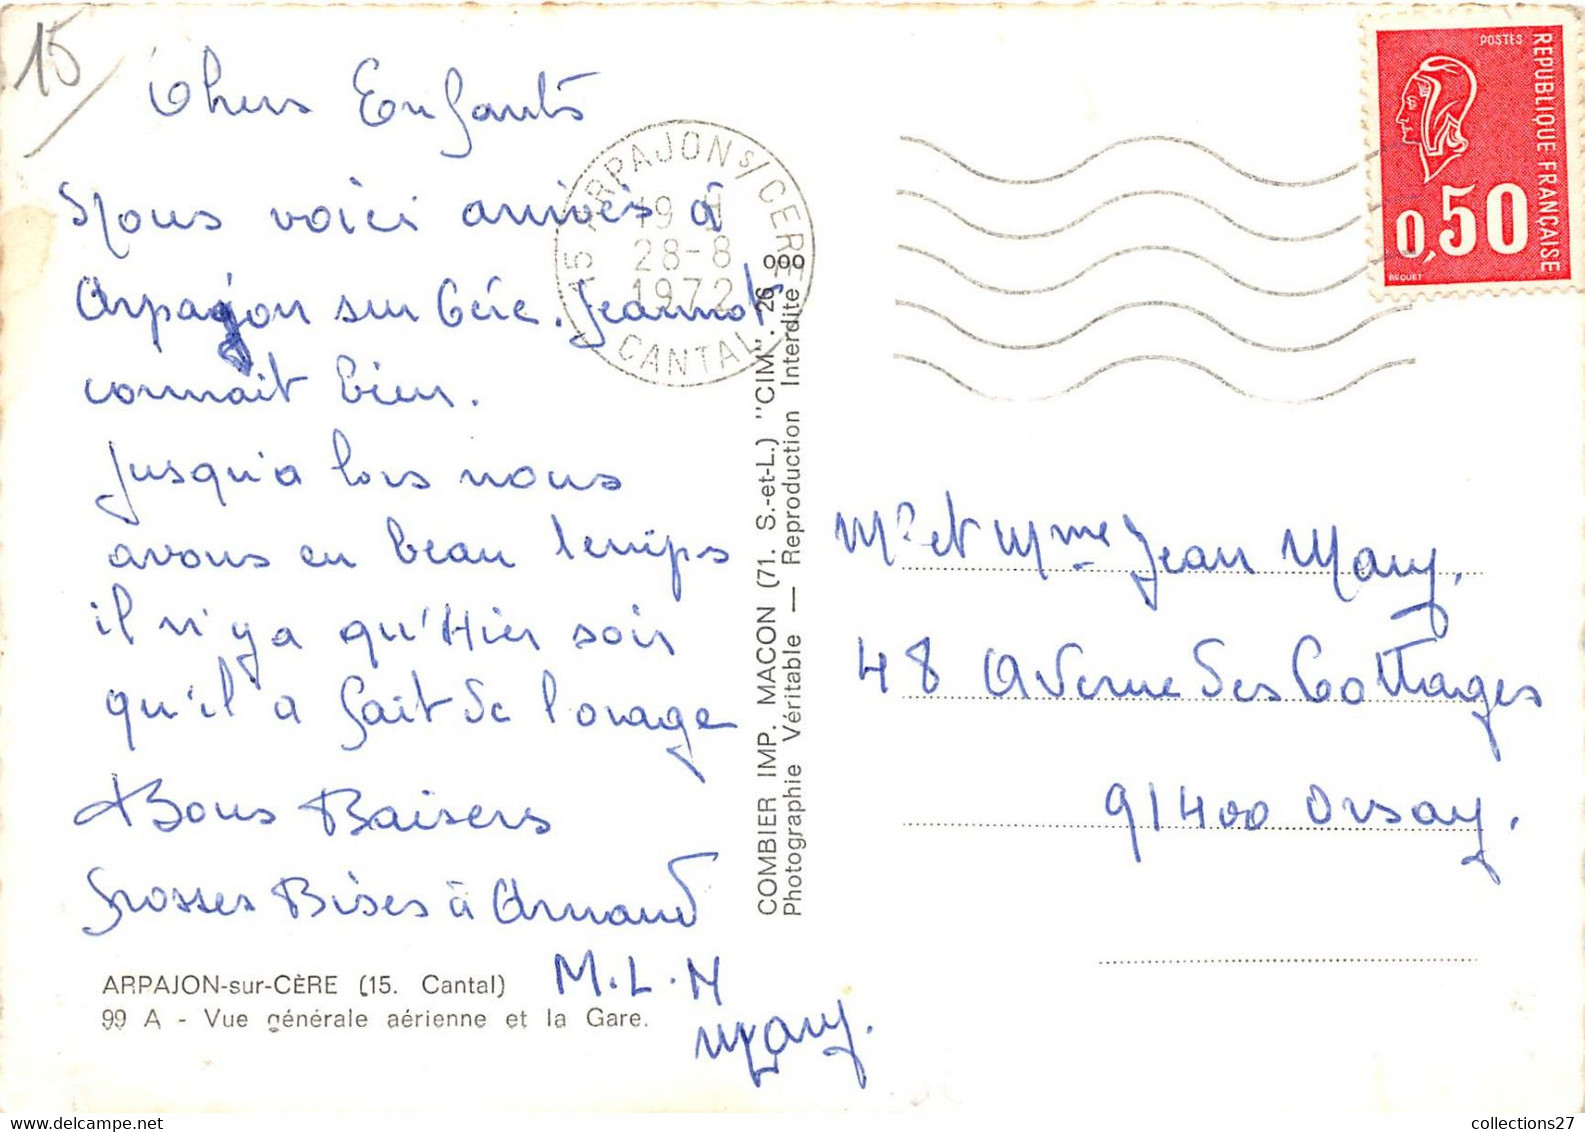 15
Chers Enfants
Nous voici arrivés à
Arpajon sur Cére. Jeannot
connait bien.
Jusqu'a lors nous
avons eu beau temps
il n'y a qu'Hier soir
qu'il a fait de l'orage
Bons Baisers
Grosses Bises à Arnaud
M.L.M
Mary.
ARPAJON-sur-CÈRE (15. Cantal)
99 A - Vue générale aérienne et la Gare.
15 ARPAJON s/ CERE
19 H
28-8
1972
CANTAL
COMBIER IMP. MACON (71. S.-et-L.) "CIM". 26 000
Photographie Véritable — Reproduction Interdite
POSTES
REPUBLIQUE FRANÇAISE
0,50
BEQUET
Mr et Mme Jean Mary.
48 Avenue des Cottages
91400 Orsay.
collections27